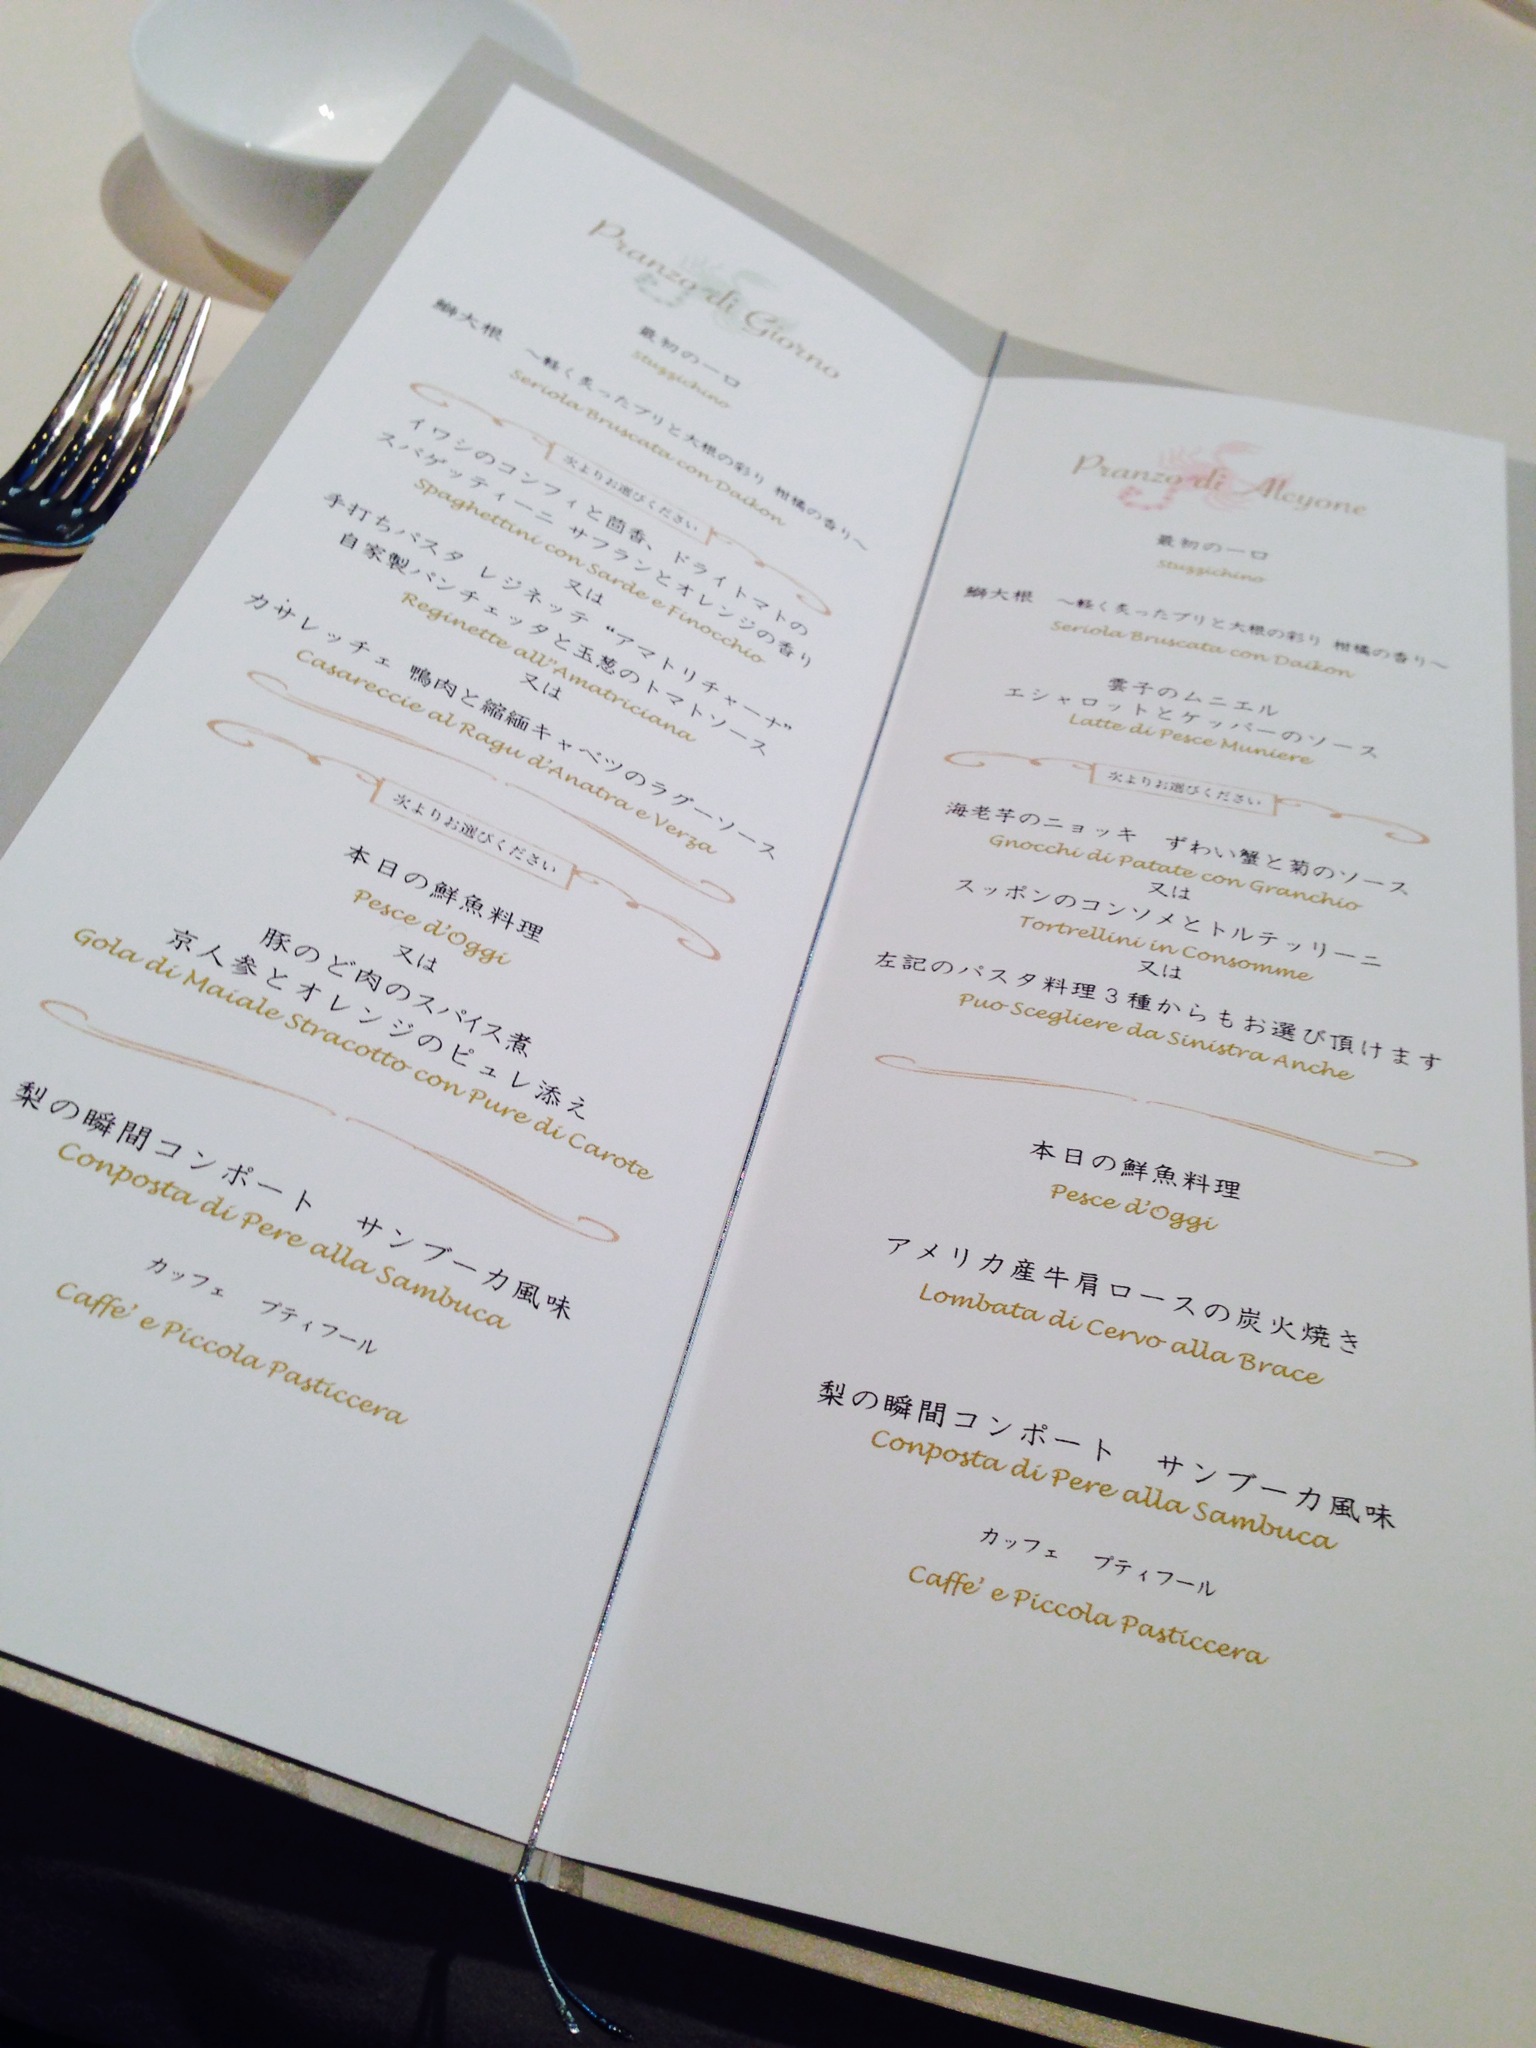 Pranzo di Giorno
最初の一口
Stuzzichino
鰤大根　～軽く炙ったブリと大根の彩り 柑橘の香り～
Seriola Bruscata con Daikon
次よりお選びください
イワシのコンフィと茴香、ドライトマトの
スパゲッティーニ サフランとオレンジの香り
Spaghettini con Sarde e Finocchio
又は
手打ちパスタ レジネッテ “アマトリチャーナ”
自家製パンチェッタと玉葱のトマトソース
Reginette all'Amatriciana
又は
カサレッチェ 鴨肉と縮緬キャベツのラグーソース
Casareccie al Ragu d'Anatra e Verza
次よりお選びください
本日の鮮魚料理
Pesce d'Oggi
又は
豚のど肉のスパイス煮
京人参とオレンジのピュレ添え
Gola di Maiale Stracotto con Pure di Carote
梨の瞬間コンポート　サンブーカ風味
Conposta di Pere alla Sambuca
カッフェ　プティフール
Caffe' e Piccola Pasticcera
Pranzo di Alcyone
最初の一口
Stuzzichino
鰤大根　～軽く炙ったブリと大根の彩り 柑橘の香り～
Seriola Bruscata con Daikon
雲子のムニエル
エシャロットとケッパーのソース
Latte di Pesce Muniere
次よりお選びください
海老芋のニョッキ　ずわい蟹と菊のソース
Gnocchi di Patate con Granchio
又は
スッポンのコンソメとトルテッリーニ
Tortrellini in Consomme
又は
左記のパスタ料理３種からもお選び頂けます
Puo Scegliere da Sinistra Anche
本日の鮮魚料理
Pesce d'Oggi
アメリカ産牛肩ロースの炭火焼き
Lombata di Cervo alla Brace
梨の瞬間コンポート　サンブーカ風味
Conposta di Pere alla Sambuca
カッフェ　プティフール
Caffe' e Piccola Pasticcera